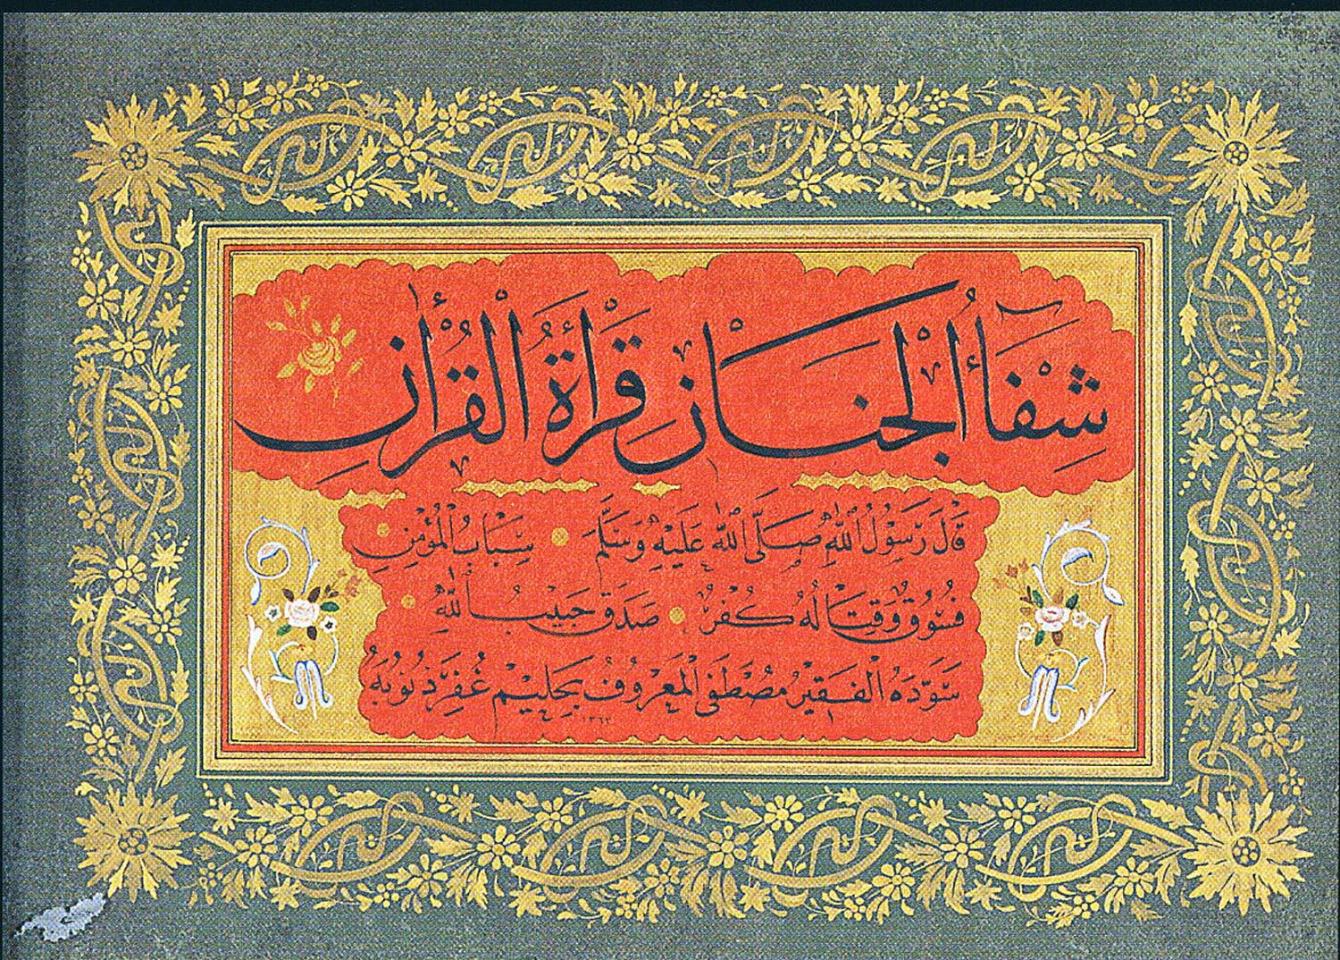 شِفَاۤءُ الْجَنَانِ قِرَاۤءَةُ الْقُرْاٰنِ
قَالَ رَسُولُ اللّٰهِ صَلَّى اللّٰهُ عَلَيْهِ وَسَلَّمَ سِبَابُ الْمُؤْمِنِ
فُسُوقٌ وَقِتَالُهُ كُفْرٌ صَدَقَ حَبِيبُ اللّٰهِ
سَوَّدَهُ الْفَقِيرُ مُصْطَفَى الْمَعْرُوفُ بِحَلِيمْ غُفِرَ ذُنُوبُهُ
١٣٦٢